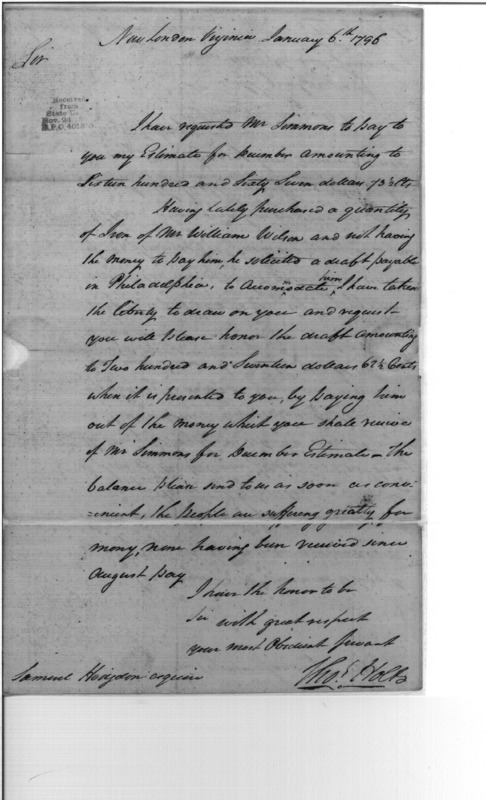 New London Virginia January 6.th 1796
Sir
Received
from
State D
Nov. 94
I have requested Mr Simmons to pay to
you my Estimate for December amounting to
Sixteen hundred and Sixty Seven dollars 73½ Cts
Having lately purchased a quantity
of Iron of Mr William Wilson and not having
the money to pay him, he solicited a draft payable
in Philadelphia, to accommodate him, I have taken
the liberty to draw on you and request
you will please honor the draft amounting
to Two hundred and Seventeen dollars 62½ Cents
when it is presented to you, by paying him
out of the money which you shall receive
of Mr Simmons for December Estimate — The
balance please send to us as soon as conv-
=enient, the People are suffering greatly for
mony, none having been received since
August pay
I have the honor to be
Sir with great respect
your most Obedient Servant
Thos. Holt
Samuel Hodgdon esquire